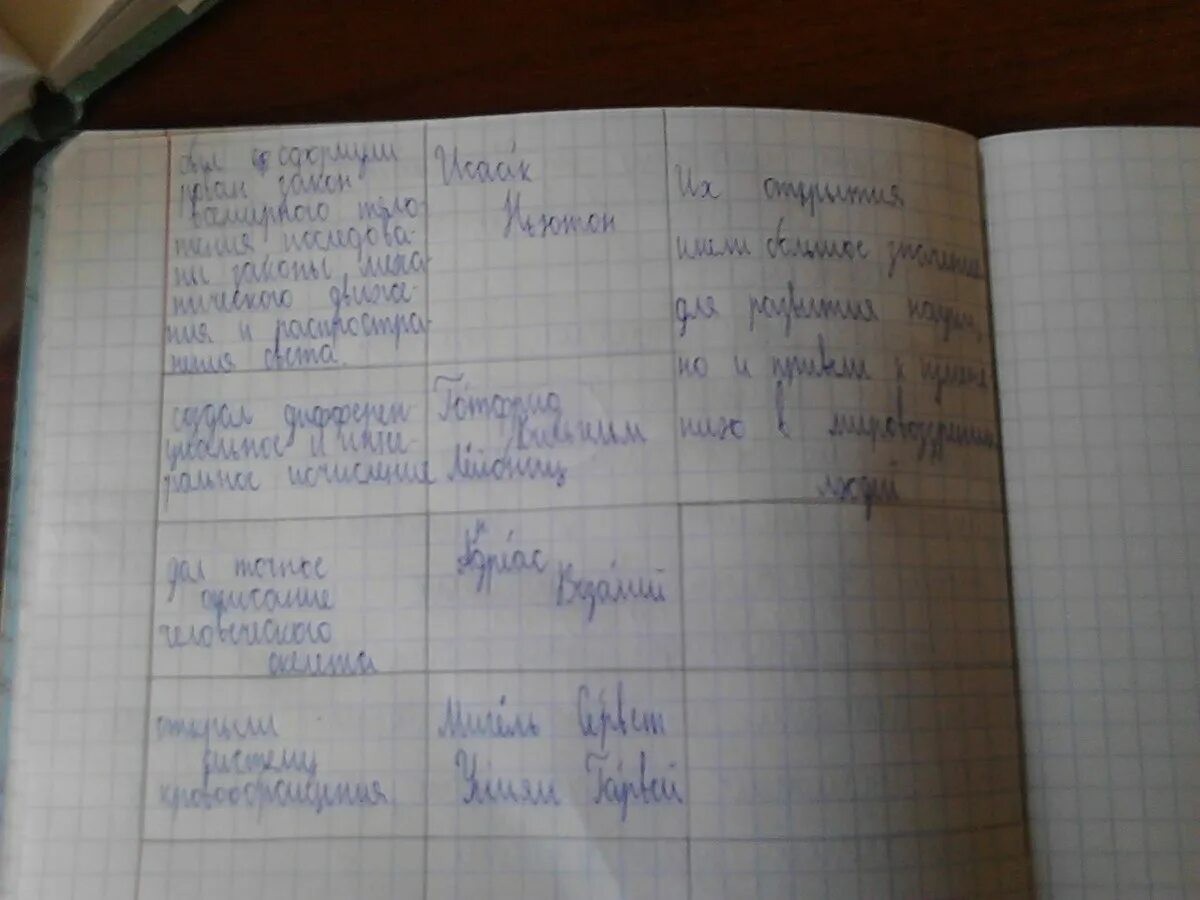 был сформули
рован закон
всемирного тяго-
тения последова-
ны законы меха-
нического движе-
ния и распростра-
нения света.
Исаак
Ньютон
Их открытия
имели большое значение
для развития науки,
но и привели к измене
нию в мировоззрении
людей
создал дифферен-
циальное и инте-
ральное исчисление
Готфрид
Вильгельм
Лейбниц
дал точное
описание
человеческого
скелета
Везалий
открыли
систему
кровообращения
Мигель Сервет
Уильям Гарвей